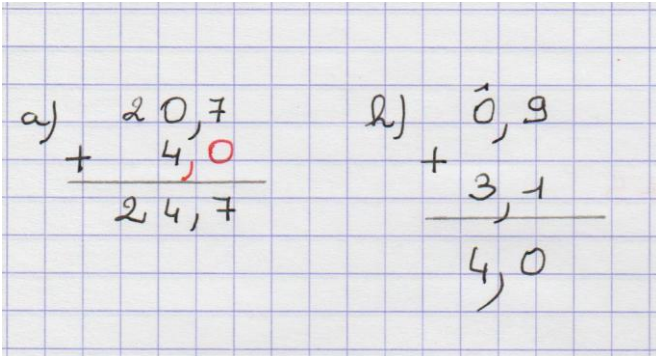 a) 20,7
+ 4,0
24,7
b) 0,9
+
3,1
4,0